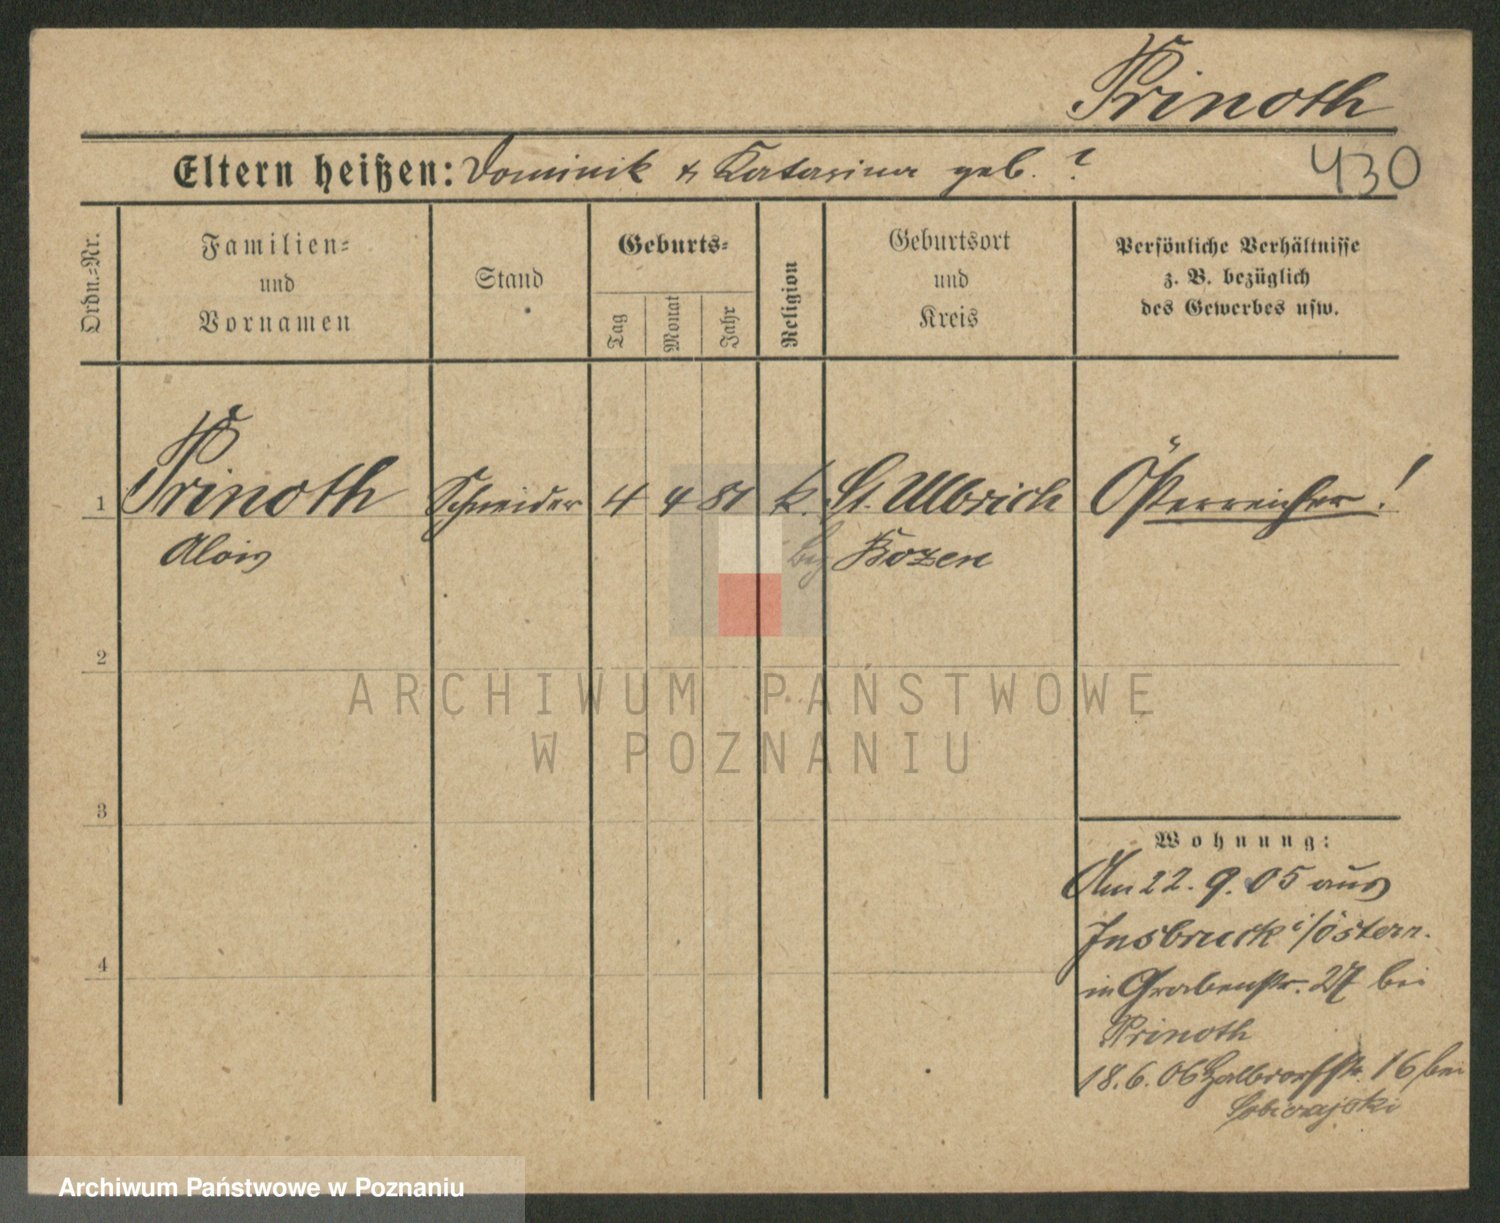 Prinoth
Eltern heißen: Dominik & Katarina geb. ?
430
Ordn.-Nr.
Familien-
und
Vornamen
Stand
Geburts-
Tag
Monat
Jahr
Religion
Geburtsort
und
Kreis
Persönliche Verhältnisse
z. B. bezüglich
des Gewerbes usw.
1 Prinoth Schneider 4 4 81 k. St. Ulbrich Österreicher!
Alois bez Bozen
2
ARCHIWUM PAŃSTWOWE
W POZNANIU
3
Wohnung:
Am 22. 9. 05 aus
Insbruck i/östern.
4
in Grabenstr. 27 bei
Prinoth
18. 6. 06 Halbdorfstr. 16 bei
Archiwum Państwowe w Poznaniu